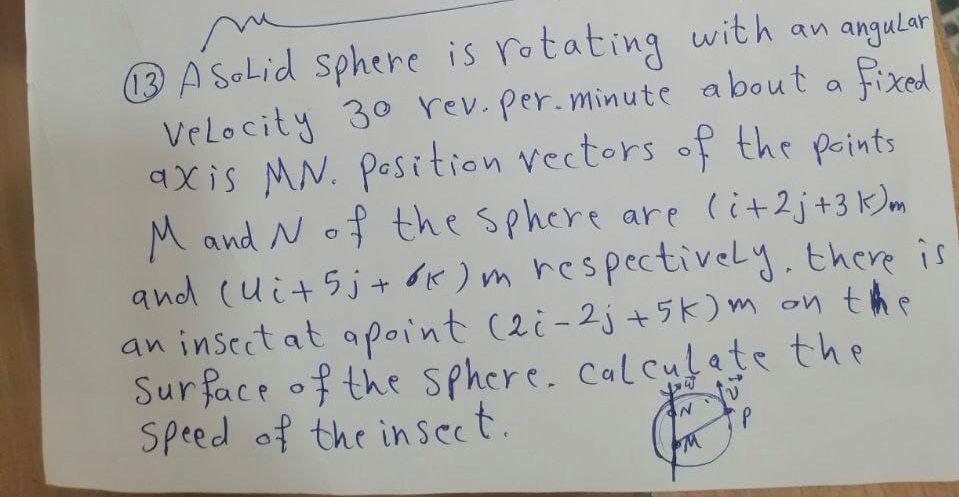 (13) A Solid sphere is rotating with an angular
velocity 30 rev. per. minute about a fixed
axis MN. Position vectors of the points
M and N of the sphere are (i+2j+3k)m
and (4i+5j+6k)m respectively. there is
an insect at a point (2i-2j+5k)m on the
Surface of the sphere. Calculate the
Speed of the insect.
N
P
M